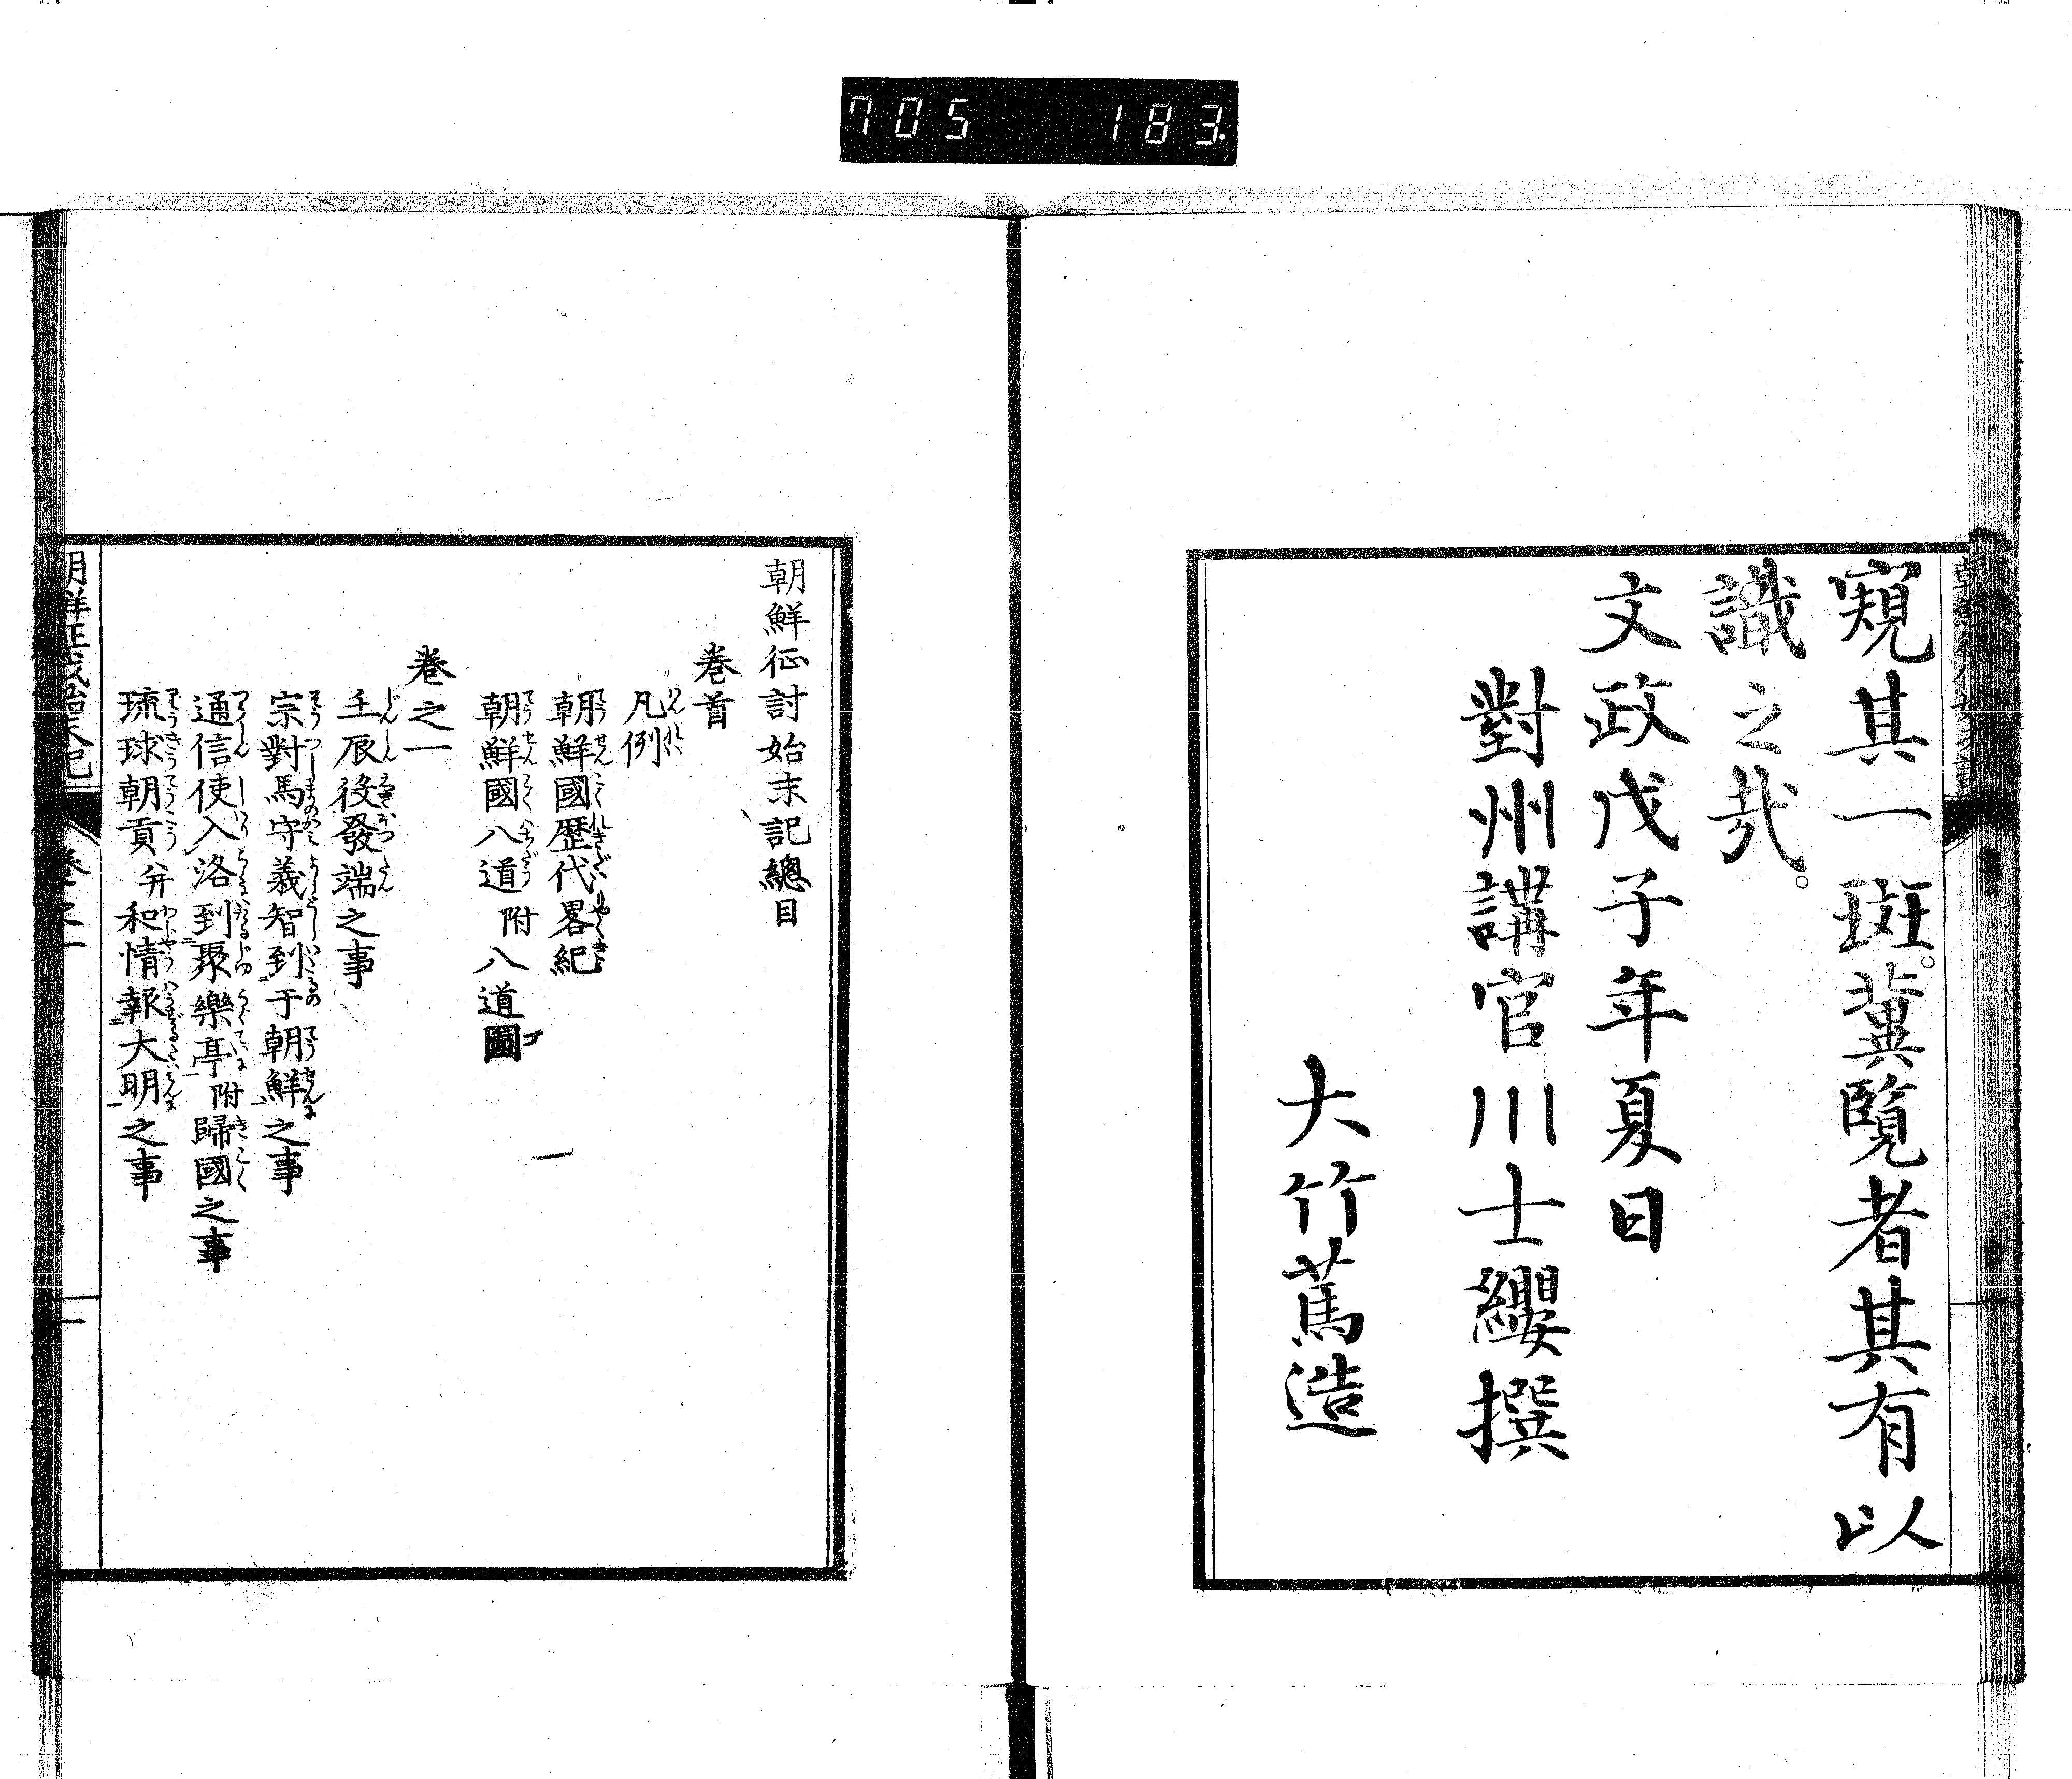 705 183.
窺其一斑。冀覧者其有以
識之哉。
文政戊子年夏日
對州講官川士纓撰
大竹蔿造
朝鮮征討始末記總目
巻首
凡例
朝鮮國歴代畧紀
朝鮮國八道附八道圖
巻之一
壬辰役發端之事
宗對馬守義智到二于朝鮮一之事
通信使入洛到二聚樂亭一附歸國之事
琉球朝貢并和情報二大明一之事